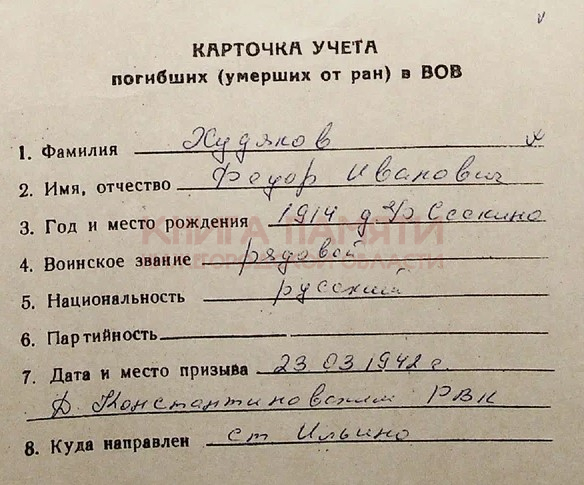 КАРТОЧКА УЧЕТА
погибших (умерших от ран) в ВОВ
1. Фамилия Худяков
2. Имя, отчество Федор Иванович
3. Год и место рождения 1914 д.
КНИГА ПАМЯТИ
4. Воинское звание рядовой
НИЖЕГОРОДСКОЙ ОБЛАСТИ
5. Национальность русский
6. Партийность —
7. Дата и место призыва 23.03.1942 г.
Д. Константиновским РВК
8. Куда направлен ст Ильино